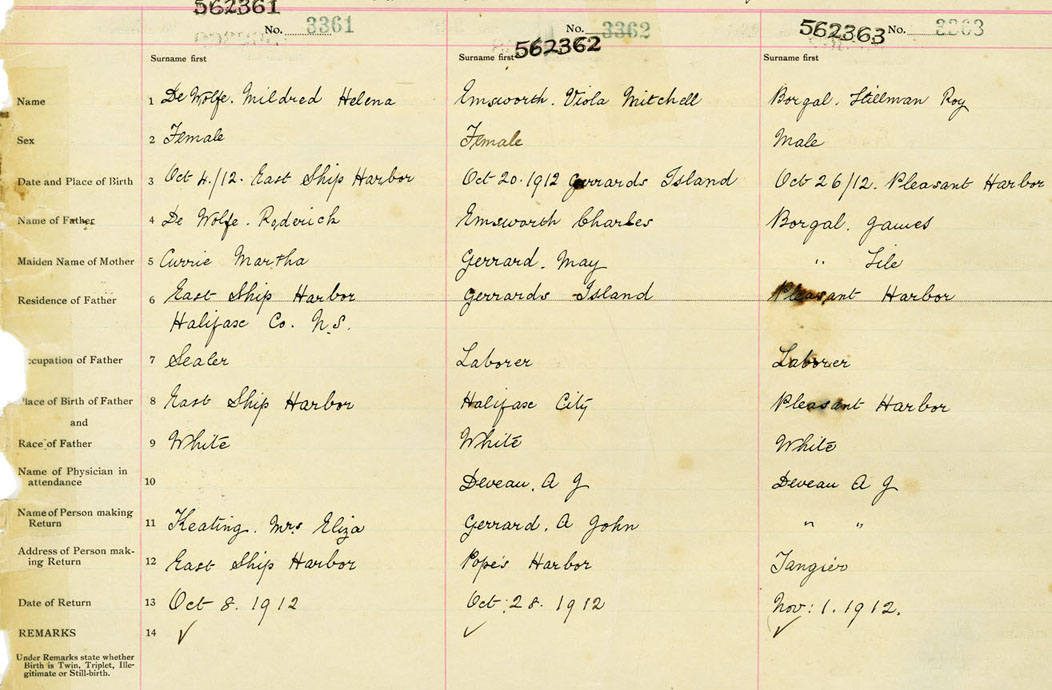 562361
No. 3361 No. 3362 562363 No. 3363
562362
Surname first Surname first Surname first
Name 1 De Wolfe. Mildred Helena Emsworth. Viola Mitchell Borgal. Stillman Roy
Sex 2 Female Female Male
Date and Place of Birth 3 Oct 4./12. East Ship Harbor Oct 20. 1912 Gerrards Island Oct 26/12. Pleasant Harbor
Name of Father 4 De Wolfe. Roderich Emsworth Charles Borgal. James
Maiden Name of Mother 5 Currie Martha Gerrard. May " Lile
Residence of Father 6 East Ship Harbor Gerrards Island Pleasant Harbor
Halifax Co. N.S.
ccupation of Father 7 Sealer Laborer Laborer
lace of Birth of Father 8 East Ship Harbor Halifax City Pleasant Harbor
and
Race of Father 9 White White White
Name of Physician in
attendance 10 Deveau. A J Deveau A J
Name of Person making
Return 11 Keating. Mrs Eliza Gerrard. A John " "
Address of Person mak-
ing Return 12 East Ship Harbor Pope's Harbor Tangier
Date of Return 13 Oct 8. 1912 Oct: 28. 1912 Nov: 1. 1912.
REMARKS 14 ✓ ✓ ✓
Under Remarks state whether
Birth is Twin, Triplet, Ille-
gitimate or Still-birth.